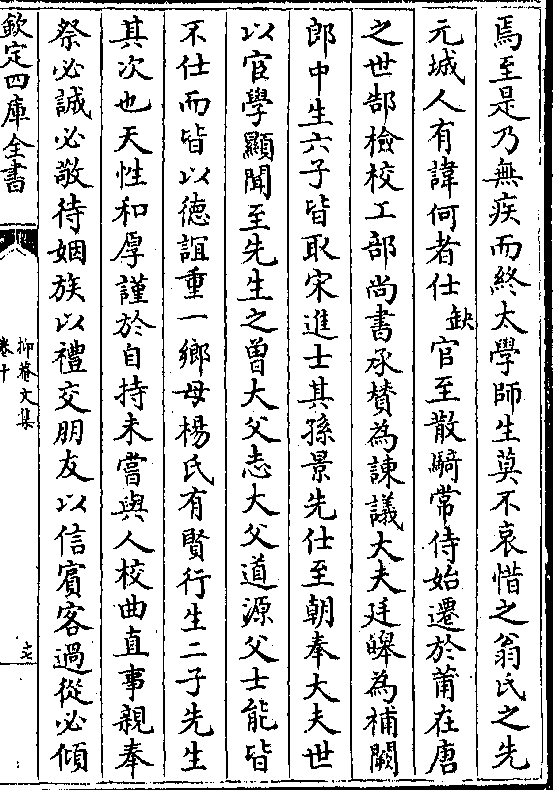 焉至是乃無疾而終太學師生莫不哀惜之翁氏之先
元城人有諱何者仕缺官至散騎常侍始遷於莆在唐
之世郜檢校工部尚書承賛為諫議大夫廷皥為補闕
郎中生六子皆取宋進士其孫景先仕至朝奉大夫世
以官學顯聞至先生之曽大父志大父道源父士能皆
不仕而皆以徳誼重一鄉母楊氏有賢行生二子先生
其次也天性和厚謹於自持未嘗與人校曲直事親奉
祭必誠必敬待姻族以禮交朋友以信賓客過從必傾
欽定四庫全書
抑菴文集
卷十